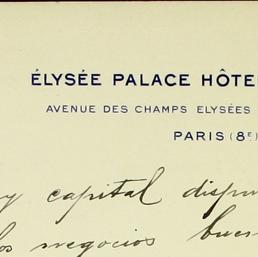 ÉLYSÉE PALACE HÔTE
AVENUE DES CHAMPS ELYSÉES
PARIS (8E)
y capital dispu
los negocios buen